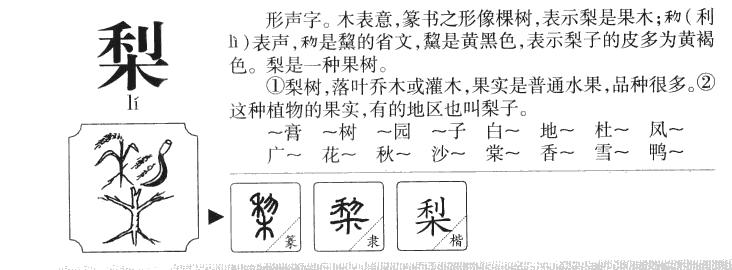 梨
lí
形声字。木表意,篆书之形像棵树,表示梨是果木;𥝢(利
lì)表声,𥝢是黧的省文,黧是黄黑色,表示梨子的皮多为黄褐
色。梨是一种果树。
①梨树,落叶乔木或灌木,果实是普通水果,品种很多。②
这种植物的果实,有的地区也叫梨子。
~膏 ~树 ~园 ~子 白~ 地~ 杜~ 凤~
广~ 花~ 秋~ 沙~ 棠~ 香~ 雪~ 鸭~
篆 隶 梨 楷